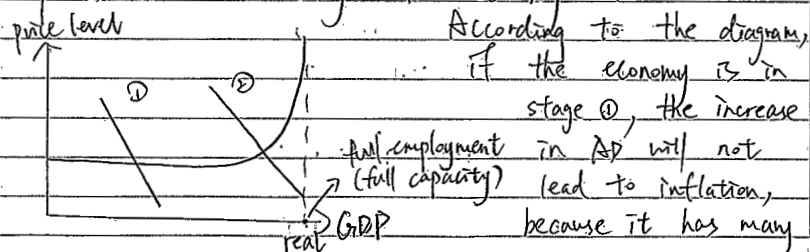 price level
① ②
full employment
(full capacity)
real GDP
According to the diagram,
if the economy is in
stage ①, the increase
in AD will not
lead to inflation,
because it has many